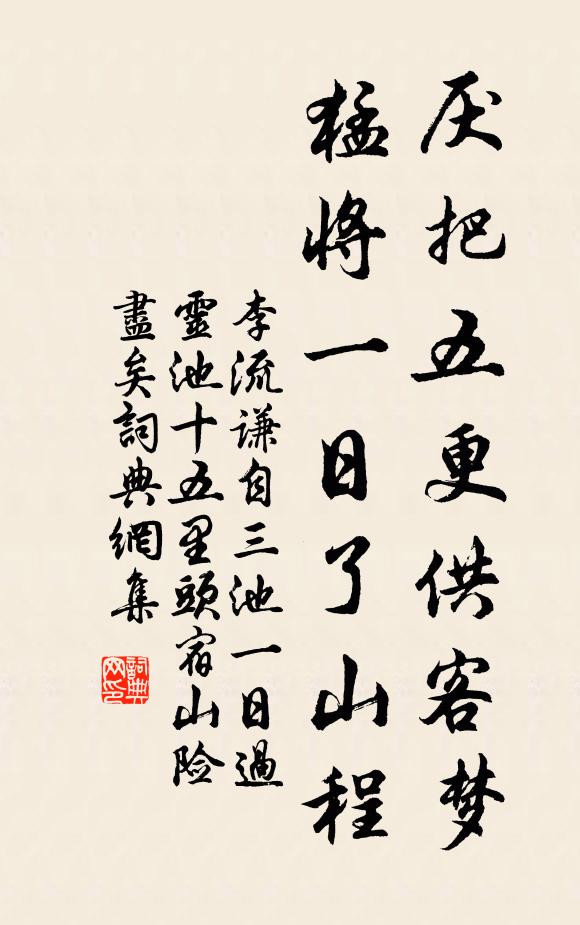 厌把五更供客梦
猛将一日了山程
李流谦自三池一日過
靈池十五里頭宿山险
盡矣詞典網集
詞典
网印